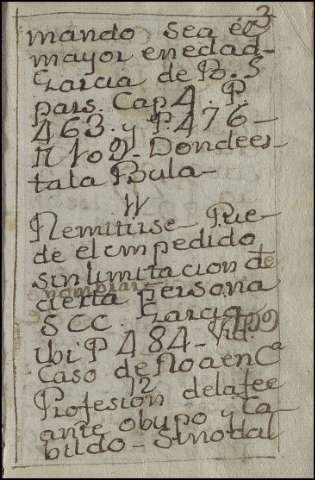 3
mando sea el
mayor en edad-
Garcia de B. 5
pars. Cap 4. P.
463. y P. 476-
N 10 Donde es-
ta la Bula-
11
Remitirse Pue-
de el impedido
sin limitacion de
cierta Persona
SCC. Garcia
Ubi P 484-
Caso de no aen Ca
12
Profesion de la fee
ante obispo y Ca-
bildo- Sinodal